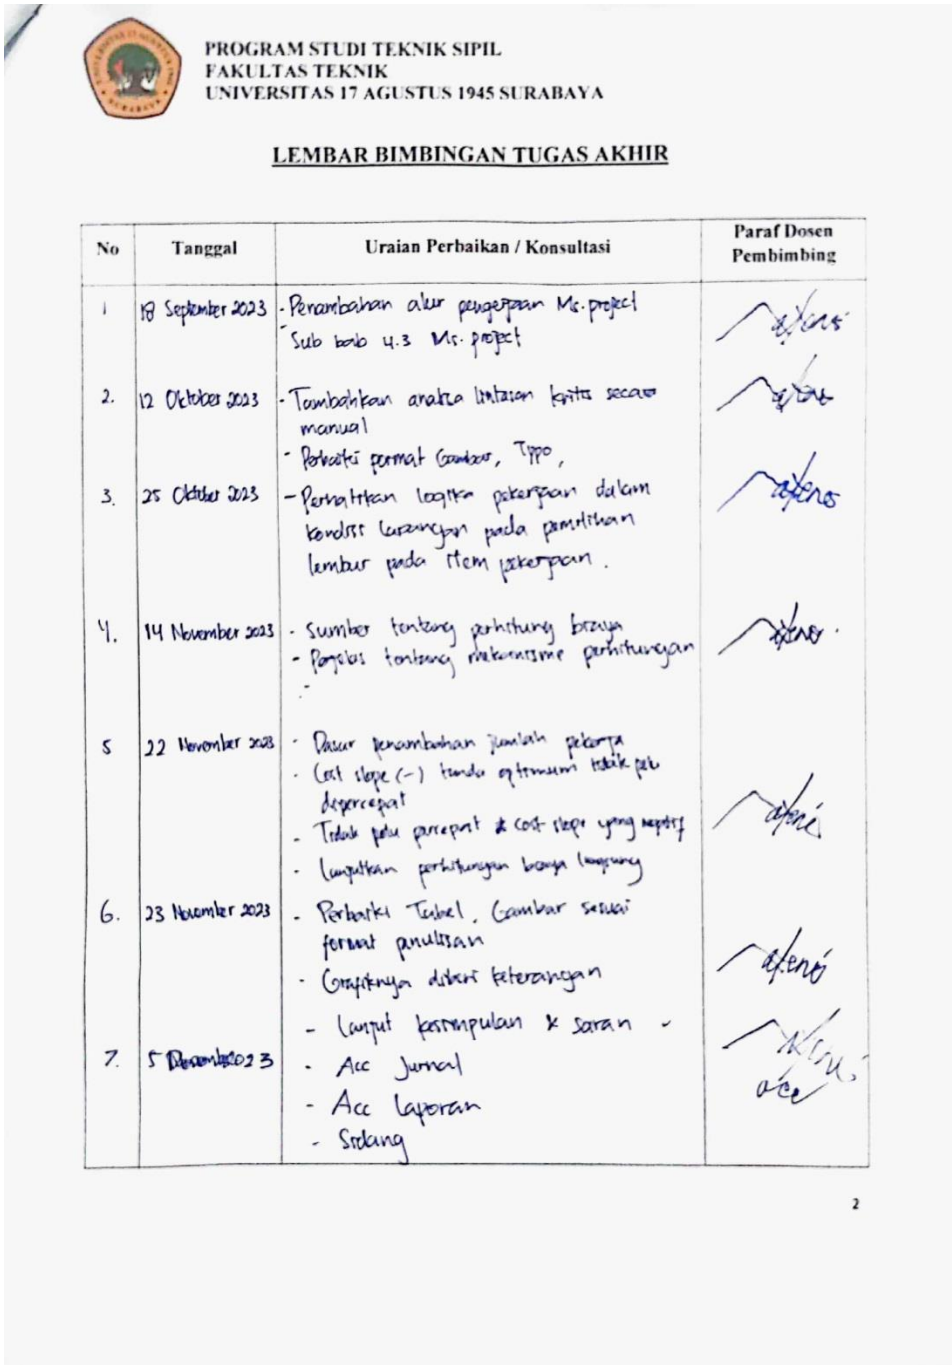 PROGRAM STUDI TEKNIK SIPIL
FAKULTAS TEKNIK
UNIVERSITAS 17 AGUSTUS 1945 SURABAYA
LEMBAR BIMBINGAN TUGAS AKHIR
No Tanggal Uraian Perbaikan / Konsultasi Paraf Dosen Pembimbing
1 18 September 2023 - Penambahan alur pengerjaan Ms. project
- Sub bab 4.3 Ms. project
2. 12 Oktober 2023 - Tambahkan analisa lintasan kritis secara
manual
- Perbaiki format Gambar, Typo,
3. 25 Oktober 2023 - Perhatikan logika pekerjaan dalam
kondisi lapangan pada pemilihan
lembur pada item pekerjaan.
4. 14 November 2023 - Sumber tentang perhitung biaya
- tentang mekanisme perhitungan
-
5 22 November 2023 - Dasar penambahan jumlah pekerja
- Cost slope (-) tanda optimum tidak perlu
dipercepat
- Tidak perlu percepat & cost slope yang negatif
- Lanjutkan perhitungan biaya langsung
6. 23 November 2023 - Perbaiki Tabel, Gambar sesuai
format penulisan
- Grafiknya diberi keterangan
- Lanjut kesimpulan & saran
7. 5 2023 - Acc Jurnal
acc
- Acc Laporan
- Sidang
2